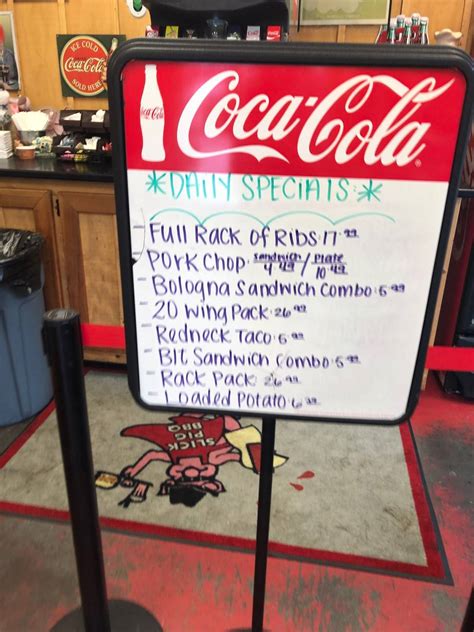 ICE COLD
Coca-Cola
SOLD HERE
Coca-Cola
Coca-Cola
*DAILY SPECIALS:*
- Full Rack of Ribs: 17.99
- Pork Chop: sandwich 4.49 / Plate 10.49
- Bologna Sandwich Combo: 5.99
- 20 Wing Pack: 26.99
- Redneck Taco: 6.99
- Blt Sandwich Combo: 5.99
- Rack Pack 26.99
- Loaded Potato: 6.99
SLICK
PIG
BBQ